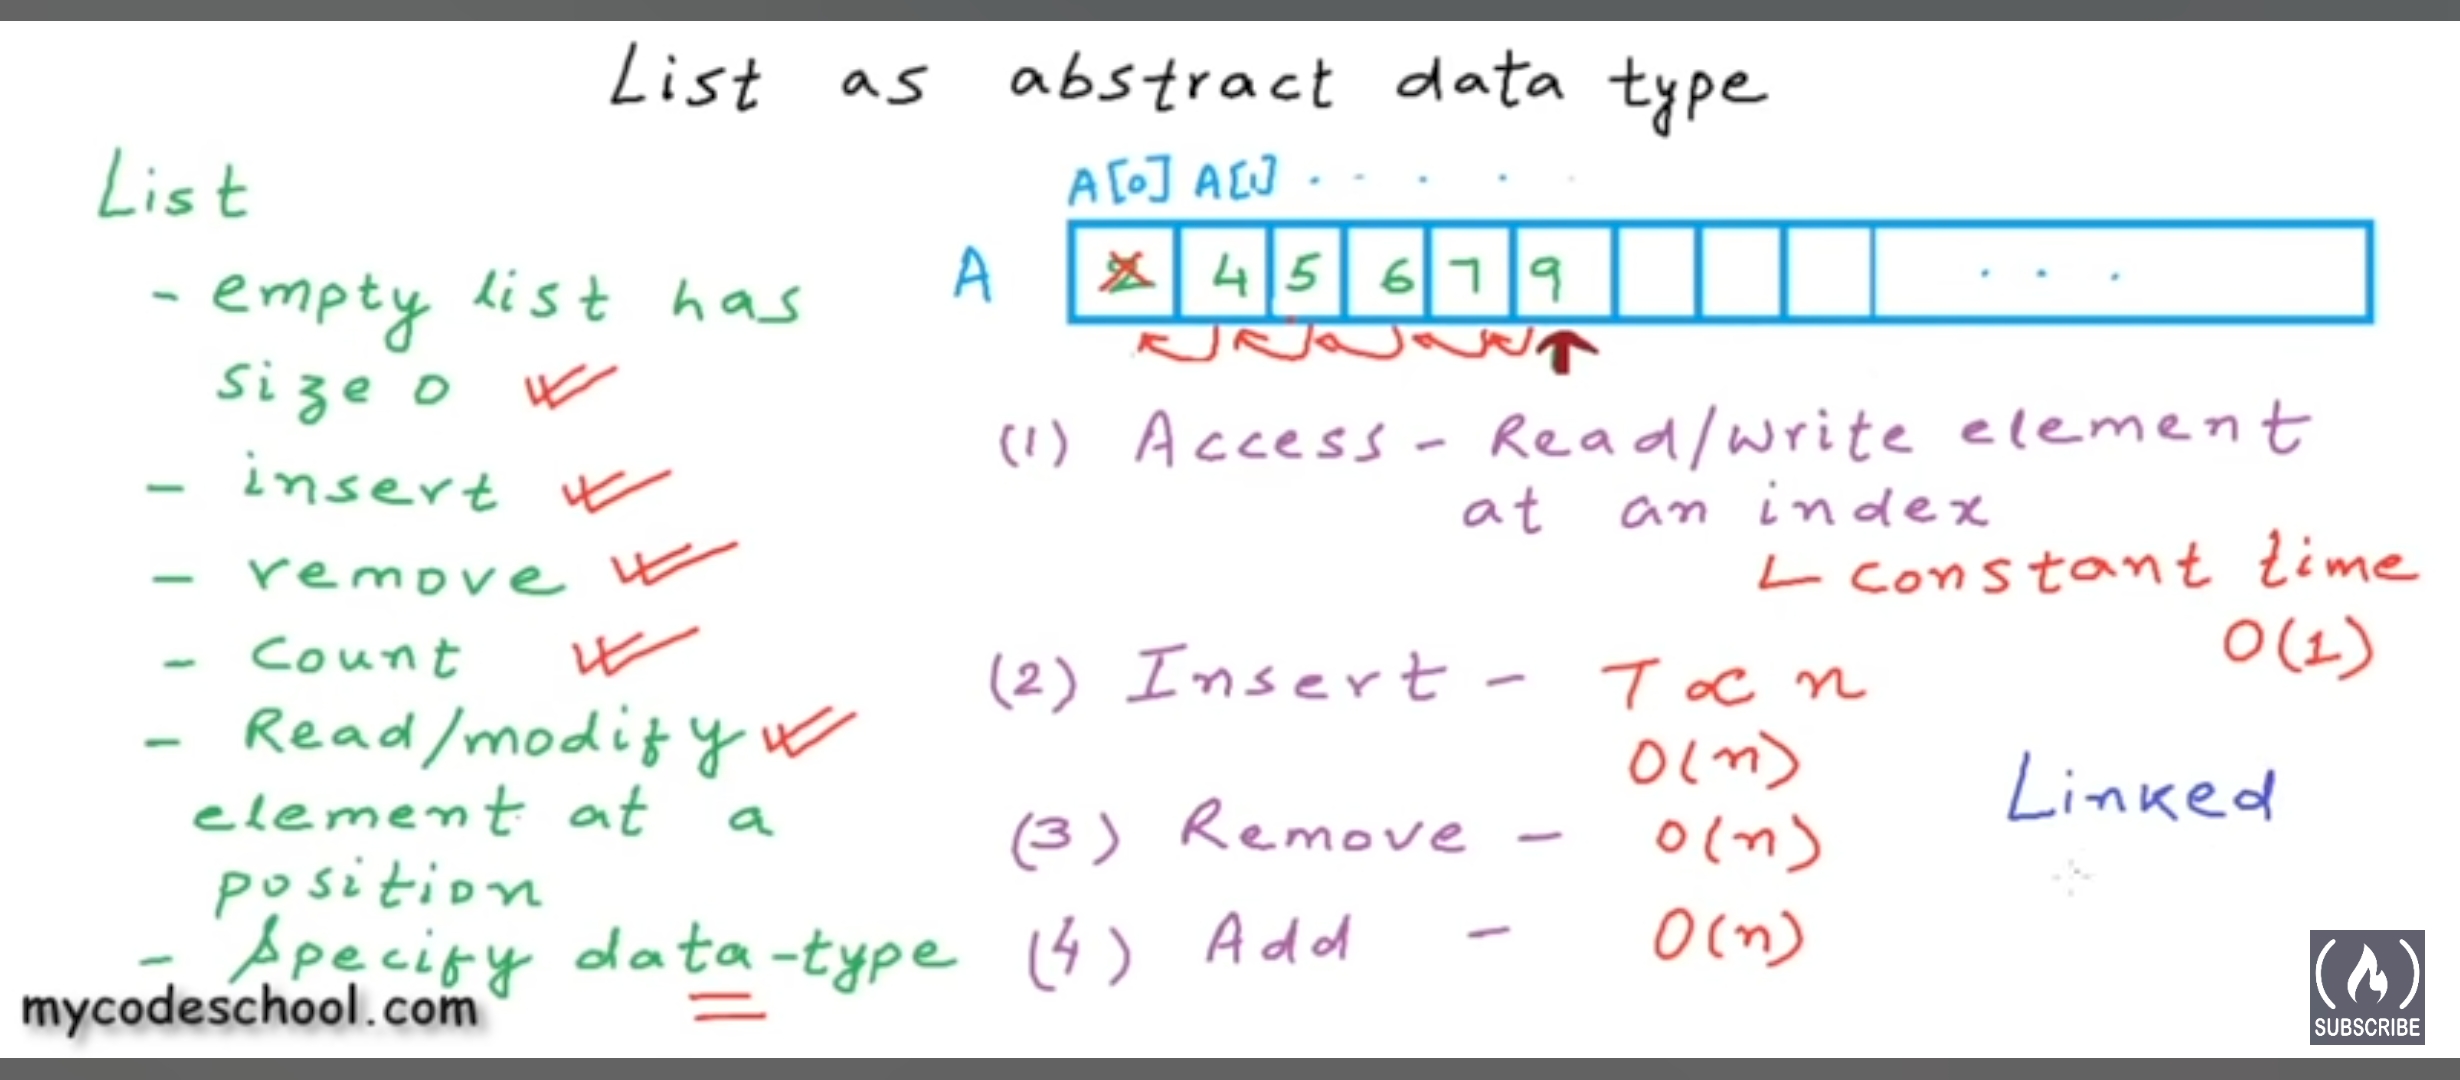 List as abstract data type
List
- empty list has
size 0
- insert
- remove
- Count
- Read/modify
element at a
position
- Specify data-type
A[0] A[1] . . . . .
A 2 4 5 6 7 9 . . .
(1) Access - Read/Write element
at an index
constant time
O(1)
(2) Insert - T ∝ n
O(n)
(3) Remove - O(n)
(4) Add - O(n)
Linked
mycodeschool.com
SUBSCRIBE